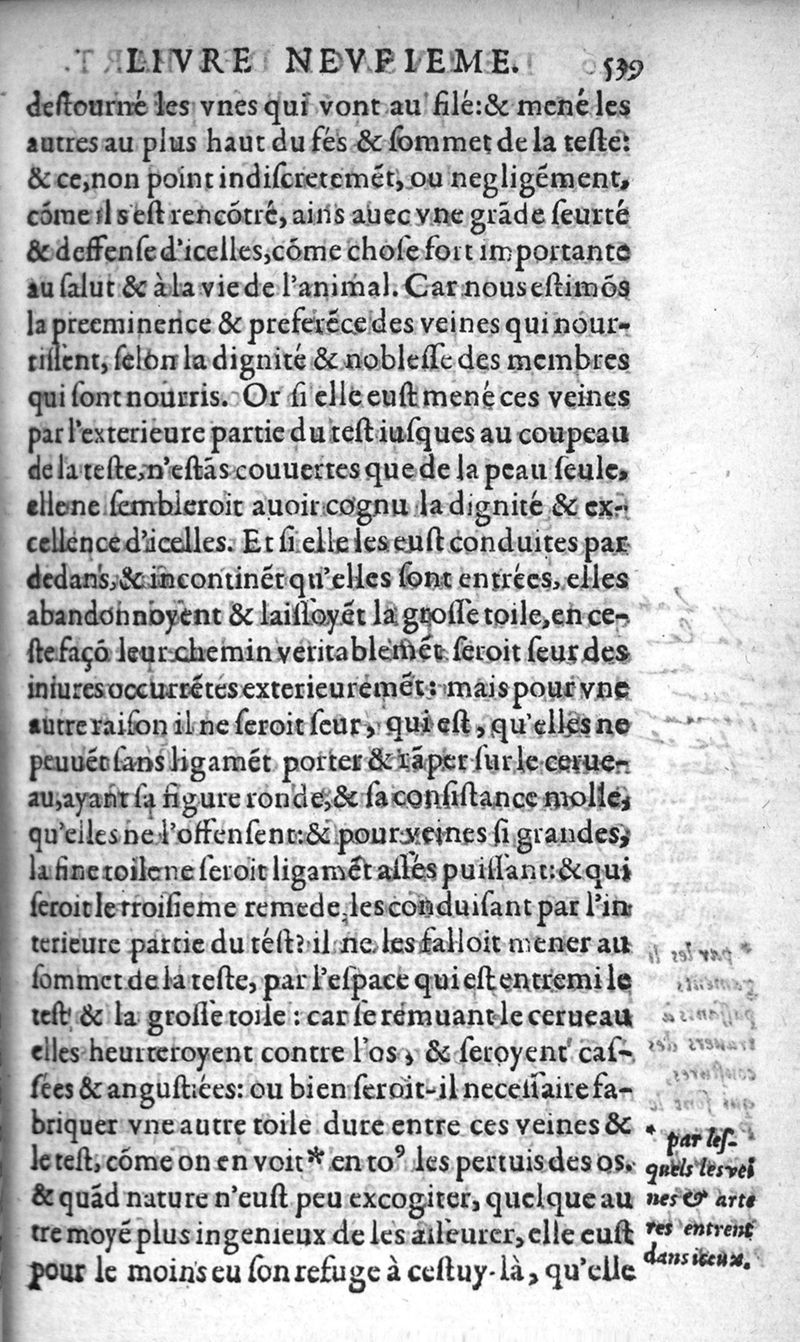 LIVRE NEVFIEME. 539
deſtourné les vnes qui vont au filé:& mené les
autres au plus haut du fés & ſommet de la teſte:
& ce, non point indiſcretemẽt, ou negligẽment,
cõme il s'eſt rencõtré, ains auec vne grãde ſeurté
& deffenſe d'icelles, cõme choſe fort importante
au ſalut & à la vie de l'animal. Car nous eſtimõs
la preeminence & preferẽce des veines qui nour-
riſſent, ſelon la dignité & nobleſſe des membres
qui ſont nourris. Or ſi elle euſt mené ces veines
par l'exterieure partie du teſt iuſques au coupeau
de la teſte, n'eſtãs couuertes que de la peau ſeule,
elle ne ſembleroit auoir cognu la dignité & ex-
cellence d'icelles. Et ſi elle les euſt conduites par
dedans, & incontinẽt qu'elles ſont entrées, elles
abandonnoyent & laiſſoyẽt la groſſe toile, en ce-
ſte façõ leur chemin veritablemẽt ſeroit ſeur des
iniures occurrẽtes exterieuremẽt: mais pour vne
autre raiſon il ne ſeroit ſeur, qui eſt, qu'elles ne
peuuẽt ſans ligamẽt porter & rãper ſur le cerue-
au, ayant ſa figure ronde, & ſa conſiſtance molle,
qu'elles ne l'offenſent: & pour veines ſi grandes,
la fine toile ne ſeroit ligamẽt aſſés puiſſant: & qui
ſeroit le troiſieme remede, les conduiſant par l'in
terieure partie du téſt? il ne les falloit mener au
ſommet de la teſte, par l'eſpace qui eſt entremi le
teſt & la groſſe toile : car ſe remuant le cerueau
elles heurteroyent contre l'os, & ſeroyent caſ-
ſées & anguſtiées: ou bien ſeroit-il neceſſaire fa-
briquer vne autre toile dure entre ces veines &
le teſt, cõme on en voit* en toꝰ les pertuis des os.
& quãd nature n'euſt peu excogiter, quelque au
tre moyẽ plus ingenieux de les aſſeurer, elle euſt
pour le moins eu ſon refuge à ceſtuy-là, qu'elle
* par leſ-
quels les vei
nes & arte
res entrent
dans iceux.